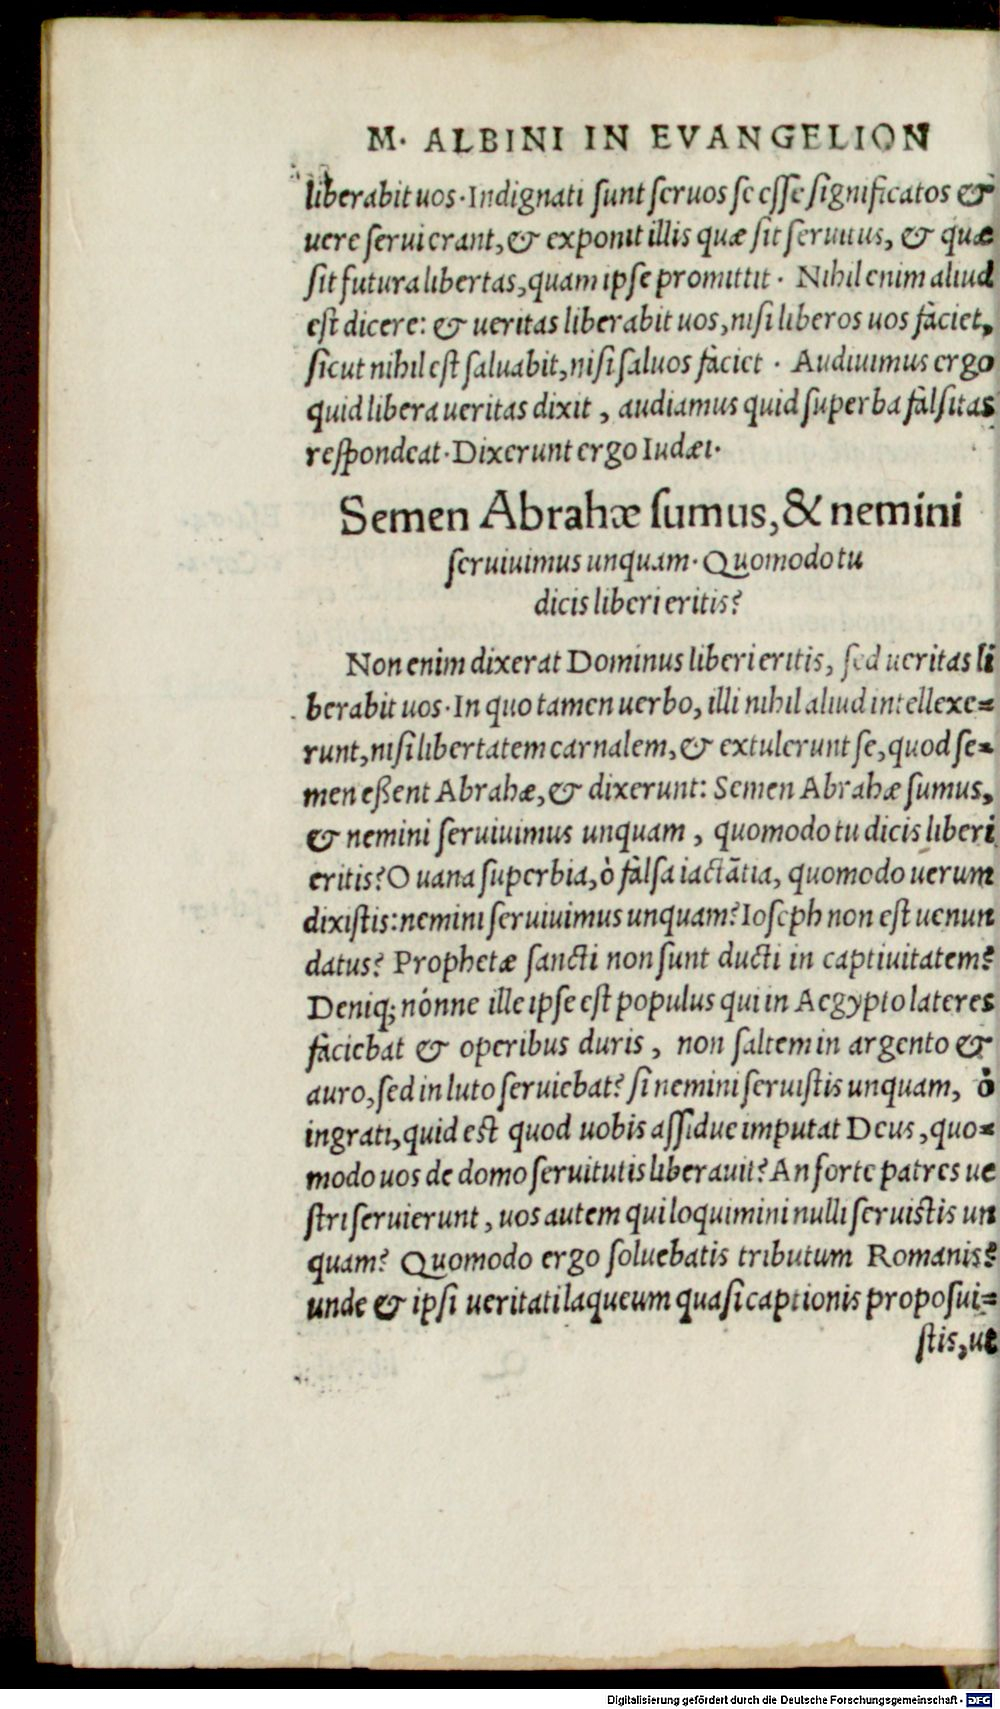 M. ALBINI IN EVANGELION
liberabit uos. Indignati sunt seruos se esse significatos &
uere serui erant, & exponit illis quæ sit seruitus, & quæ
sit futura libertas, quam ipse promittit. Nihil enim aliud
est dicere: & ueritas liberabit uos, nisi liberos uos faciet,
sicut nihil est saluabit, nisi saluos faciet. Audiuimus ergo
quid libera ueritas dixit, audiamus quid superba falsitas
respondeat. Dixerunt ergo Iudæi.
Semen Abrahæ sumus, & nemini
seruiuimus unquam. Quomodo tu
dicis liberi eritis?
Non enim dixerat Dominus liberi eritis, sed ueritas li
berabit uos. In quo tamen uerbo, illi nihil aliud intellexe=
runt, nisi libertatem carnalem, & extulerunt se, quod se=
men eßent Abrahæ, & dixerunt: Semen Abrahæ sumus,
& nemini seruiuimus unquam, quomodo tu dicis liberi
eritis? O uana superbia, ò falsa iactãtia, quomodo uerum
dixistis: nemini seruiuimus unquam? Ioseph non est uenun
datus? Prophetæ sancti non sunt ducti in captiuitatem?
Deniq; nónne ille ipse est populus qui in Aegypto lateres
faciebat & operibus duris, non saltem in argento &
auro, sed in luto seruiebat? si nemini seruistis unquam, ò
ingrati, quid est quod uobis assidue imputat Deus, quo=
modo uos de domo seruitutis liberauit? An forte patres ue
stri seruierunt, uos autem qui loquimini nulli seruistis un
quam? Quomodo ergo soluebatis tributum Romanis?
unde & ipsi ueritati laqueum quasi captionis proposui=
stis, ut
Digitalisierung gefördert durch die Deutsche Forschungsgemeinschaft - DFG